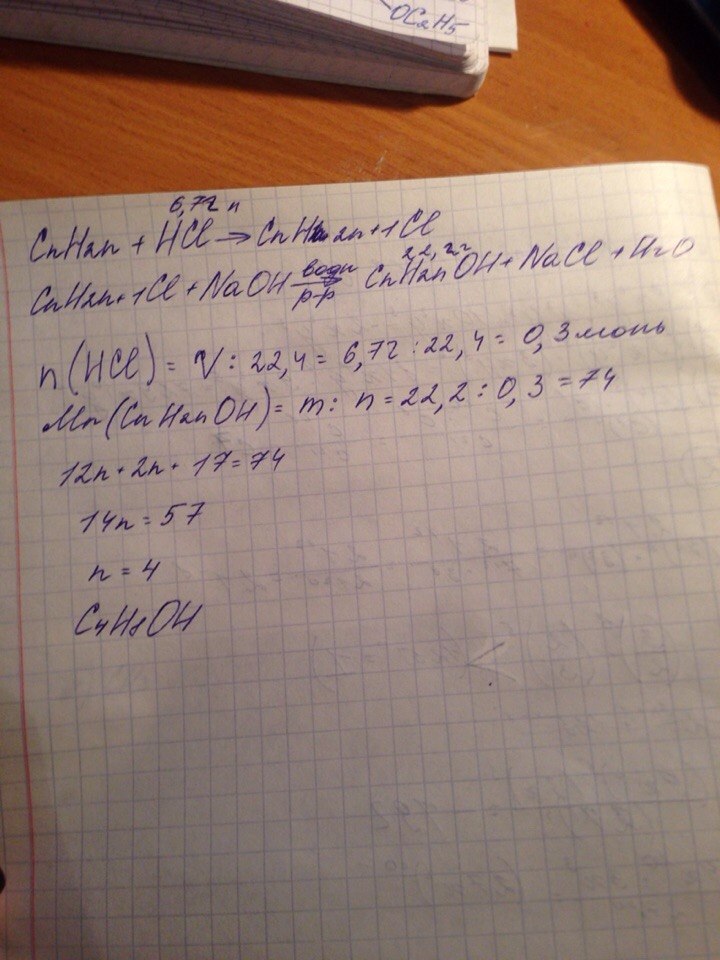 OC2H5
6,72 л
CnH2n + HCl → CnH2n+1Cl
22,2г
CnH2n+1Cl + NaOH водн р-р → CnH2nOH + NaCl + H2O
n(HCl) = V : 22,4 = 6,72 : 22,4 = 0,3 моль
Mr(CnH2nOH) = m : n = 22,2 : 0,3 = 74
12n + 2n + 17 = 74
14n = 57
n = 4
C4H8OH